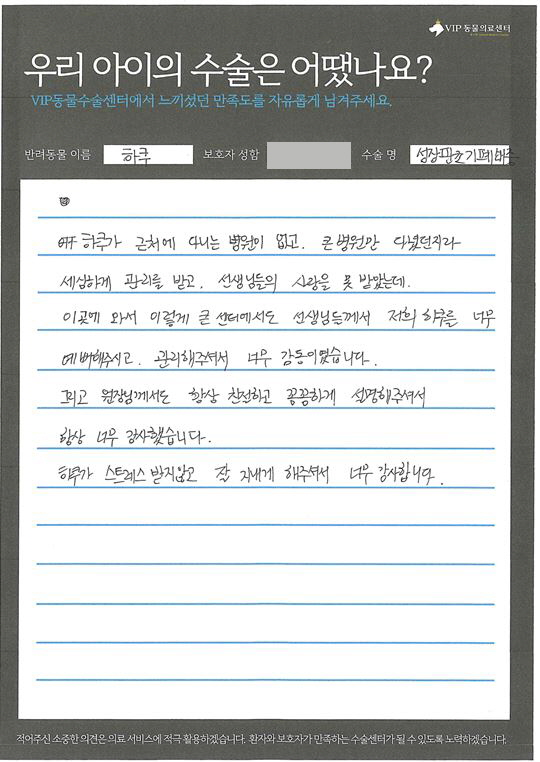 VIP 동물의료센터
우리 아이의 수술은 어땠나요?
VIP동물수술센터에서 느끼셨던 만족도를 자유롭게 남겨주세요.
반려동물 이름 하쿠 보호자 성함 수술 명 성장판조기폐쇄증
하쿠가 근처에 다니는 병원이 없고, 큰 병원만 다녔던지라
세심하게 관리를 받고, 선생님들의 사랑을 못 받았는데.
이곳에 와서 이렇게 큰 센터에서도 선생님들께서 저희 하쿠를 너무
예뻐해주시고, 관리해주셔서 너무 감동이였습니다.
그리고 원장님께서도 항상 친절하고 꼼꼼하게 설명해주셔서
항상 너무 감사했습니다.
하쿠가 스트레스 받지않고 잘 지내게 해주셔서 너무 감사합니다.
적어주신 소중한 의견은 의료 서비스에 적극 활용하겠습니다. 환자와 보호자가 만족하는 수술센터가 될 수 있도록 노력하겠습니다.